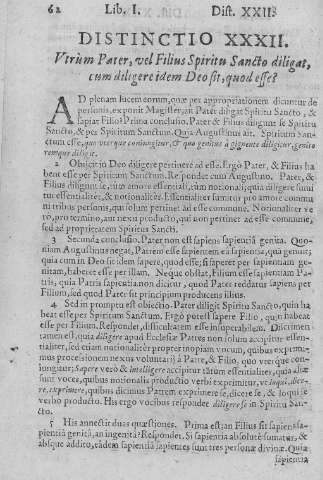 62 Lib. I. Dist. XXXII.
DISTINCTIO XXXII.
Vtrùm Pater, vel Filius Spiritu Sancto diligat,
cum diligere idem Deo sit, quod esse?
AD plenam lucem eorum, quæ per appropriationem dicuntur de
personis, exponit Magister, an Pater diligat Spiritu Sancto, &
sapiat Filio? Prima conclusio. Pater & Filius diligunt se Spiritu
Sancto, & per Spiritum Sanctum. Quia Augustinus ait. Spiritum San-
ctum esse, quo uterque coniungitur, & quo genitus à gignente diligitur, genito-
remque diligit.
2 Obijcitur Deo diligere pertinere ad esse. Ergò Pater, & Filius ha
bent esse per Spiritum Sanctum. Respondet cum Augustino, Pater, &
Filius diligunt se, tùm amore essentiali, tùm notionali; quia diligere sumi
tur essentialiter, & notionaliter. Essentialiter sumitur pro amore commu
ni tribus personis, qui solùm pertinet ad esse commune. Notionaliter ve
rò, pro termino, aut nexu producto, qui non pertinet ad esse commune,
sed ad proprietatem Spiritus Sancti.
3 Secunda conclusio. Pater non est sapiens sapientiâ genita. Quo-
niam Augustinus negat, Patrem esse sapientem ea sapientia, quam genuit;
quia cum in Deo sit idem sapere, quod esse, si saperet per sapientiam ge-
nitam, haberet esse per illam. Neque obstat, Filium esse sapientiam Pa-
tris, quia Patris sapientia non dicitur, quod Pater reddatur sapiens per
Filium, sed quod Pater sit principium producens illius.
4 Sed in promptu est obiectio. Pater diligit Spiritu Sancto, quin ha
beat esse per Spiritum Sanctum. Ergò potest sapere Filio, quin habeat
esse per Filium. Respondet, difficultatem esse insuperabilem. Discrimen
tamen est, quia diligere apud Ecclesiæ Patres non solùm accipitur essen-
tialiter, sed etiam notionaliter propter inopiam vocum, quibus exprima-
mus processionem nexus voluntarij à Patre, & Filio, quo uterque con-
iungitur; Sapere verò & intelligere accipitur tátùm essentialiter, quia aliæ
sunt voces, quibus notionalis productio verbi exprimitur, vt loqui, dice-
re, exprimere, quibus dicimus Patrem exprimere se, dicere se, & loqui se
verbo producto. His ergo vocibus respondet diligere se in Spiritu San-
cto.
5 His annectit duas quæstiones. Prima est: an Filius sit sapiens sa-
pientiâ genitâ, an ingenita? Respondet. Si sapientia absolutè sumatur, &
absque addito, eâdem sapientiâ sapientes sunt tres personæ divinæ. Quia
sapientia